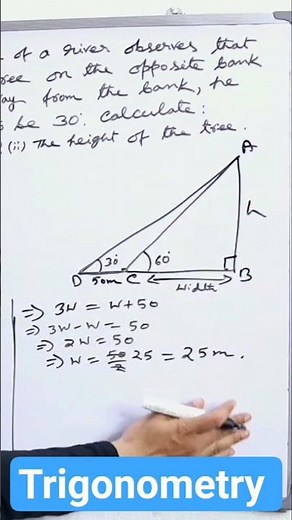 of a river observes that
ree on the opposite bank
ay from the bank, he
be 30°. calculate:
(ii) The height of the tree.
A
h
30°
60°
D 50m C
B
width
⇒ 3W = W+50
⇒ 3W-W = 50
⇒ 2W = 50
⇒ W = 50/2 25 = 25m.
Trigonometry